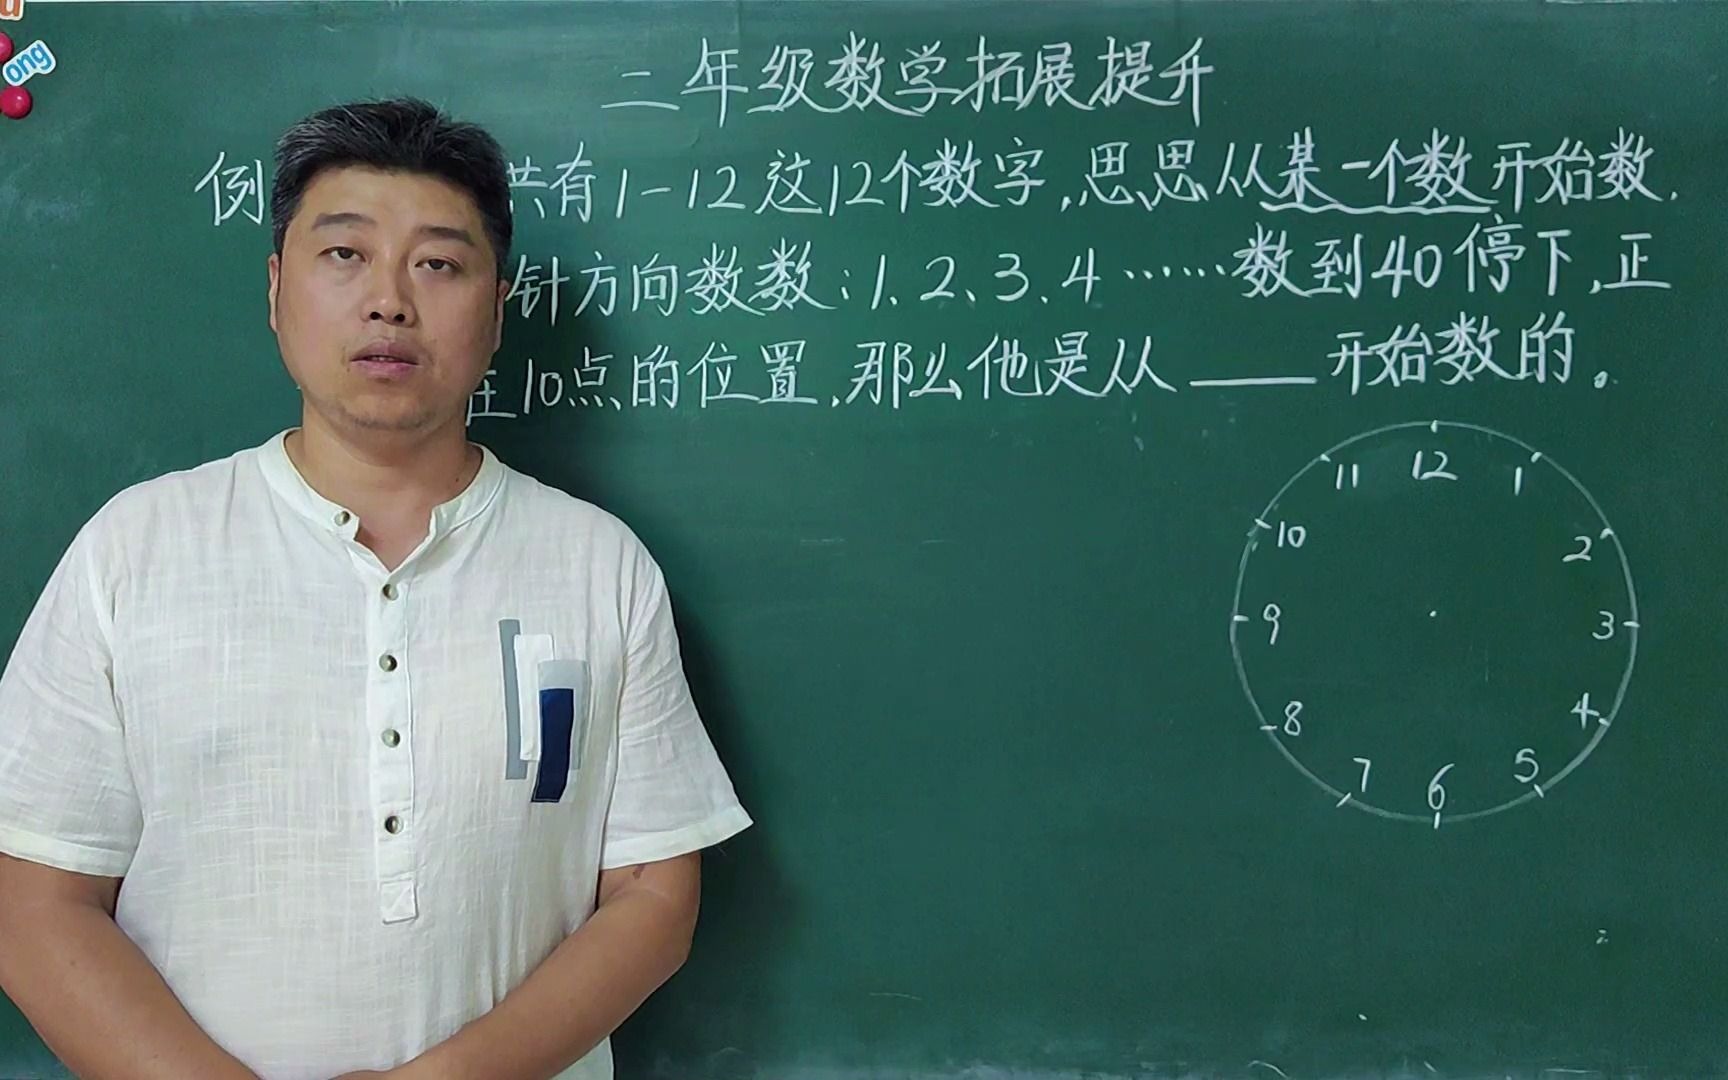 ong
二年级数学拓展提升
例 共有1-12这12个数字,思思从某一个数开始数.
针方向数数:1、2、3、4……数到40停下,正
在10点的位置,那么他是从____开始数的。
11 12 1
10 2
9 3
8 4
7 6 5